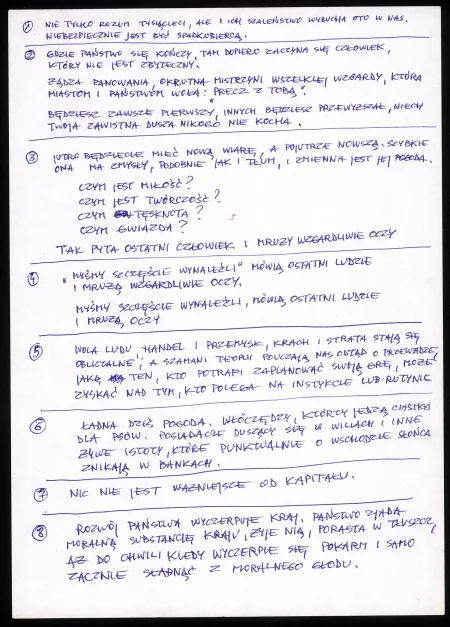 ① NIE TYLKO ROZUM TYSIĄCLECI, ALE I ICH SZALEŃSTWO WYBUCHA OTO W NAS.
NIEBEZPIECZNIE JEST BYĆ SPADKOBIERCĄ.
② GDZIE PAŃSTWO SIĘ KOŃCZY, TAM DOPIERO ZACZYNA SIĘ CZŁOWIEK,
KTÓRY NIE JEST ZBYTECZNY.
ŻĄDZA PANOWANIA, OKRUTNA MISTRZYNI WSZELKIEJ WZGARDY, KTÓRA
MIASTOM I PAŃSTWOM WOŁA: PRECZ Z TOBĄ".
BĘDZIESZ ZAWSZE PIERWSZY, INNYCH BĘDZIESZ PRZEWYŻSZAŁ, NIECH
TWOJA ZAWISTNA DUSZA NIKOGO NIE KOCHA.
③ JUTRO BĘDZIECIE MIEĆ NOWĄ WIARĘ, A POJUTRZE NOWSZĄ. SZYBKIE
ONA MA ZMYSŁY, PODOBNIE JAK I TŁUM, I ZMIENNA JEST JEJ POGODA.
CZYM JEST MIŁOŚĆ?
CZYM JEST TWÓRCZOŚĆ?
CZYM TĘSKNOTA?
CZYM GWIAZDA?
TAK PYTA OSTATNI CZŁOWIEK I MRUŻY WZGARDLIWIE OCZY
④ "MYŚMY SZCZĘŚCIE WYNALEŹLI" MÓWIĄ OSTATNI LUDZIE
I MRUŻĄ WZGARDLIWIE OCZY.
MYŚMY SZCZĘŚCIE WYNALEŹLI, MÓWIĄ OSTATNI LUDZIE
I MRUŻĄ OCZY
⑤ WOLA LUDU HANDEL I PRZEMYSŁ, KRACH I STRATA STAJĄ SIĘ
OBLICZALNE, A SZAMANI TEORII POUCZAJĄ NAS ODTĄD O PRZEWADZE,
JAKĄ TEN, KTO POTRAFI ZAPLANOWAĆ SWOJĄ GRĘ, MOŻE
ZYSKAĆ NAD TYM, KTO POLEGA NA INSTYKCIE LUB RUTYNIE
⑥ ŁADNA DZIŚ POGODA. WŁÓCZĘDZY, KTÓRZY JEDZĄ CIASTKA
DLA PSÓW. POSIADACZE DUSZĄCY SIĘ W WILLACH I INNE
ŻYWE ISTOTY, KTÓRE PUNKTUALNIE O WSCHODZIE SŁOŃCA
ZNIKAJĄ W BANKACH.
⑦ NIC NIE JEST WAŻNIEJSZE OD KAPITAŁU.
⑧ ROZWÓJ PAŃSTWA WYCZERPUJE KRAJ. PAŃSTWO ZJADA
MORALNĄ SUBSTANCJĘ KRAJU, ŻYJE NIĄ, PORASTA W TŁUSZCZ,
AŻ DO CHWILI KIEDY WYCZERPIE SIĘ POKARM I SAMO
ZACZNIE SŁABNĄĆ Z MORALNEGO GŁODU.